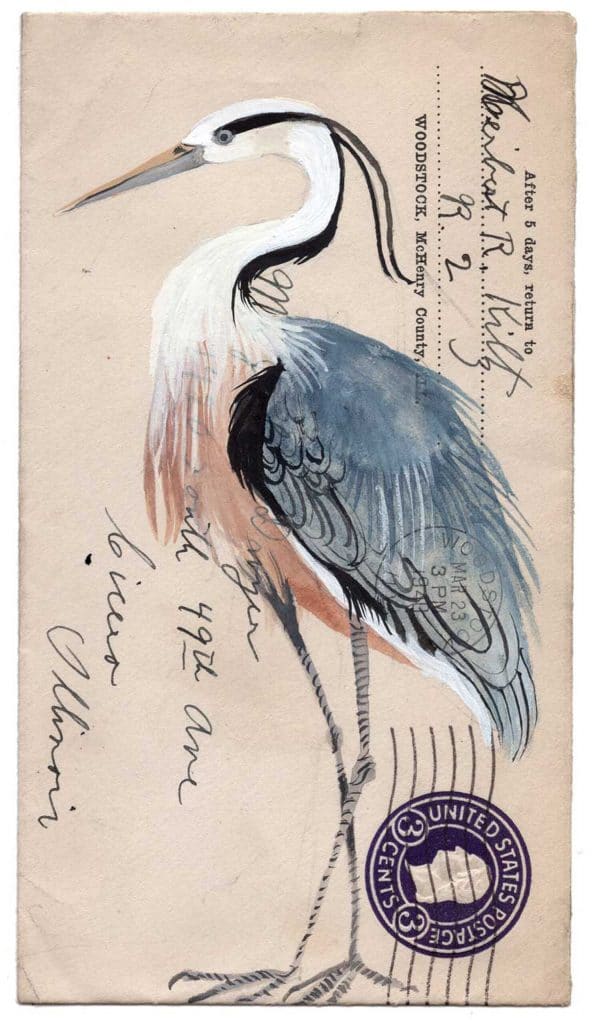 After 5 days, return to
Herbert R. Kilt
R. 2
WOODSTOCK, McHenry County,
MAR 23
3 PM
South 49th Ave
Cicero
Illinois
UNITED STATES POSTAGE
3 CENTS 3